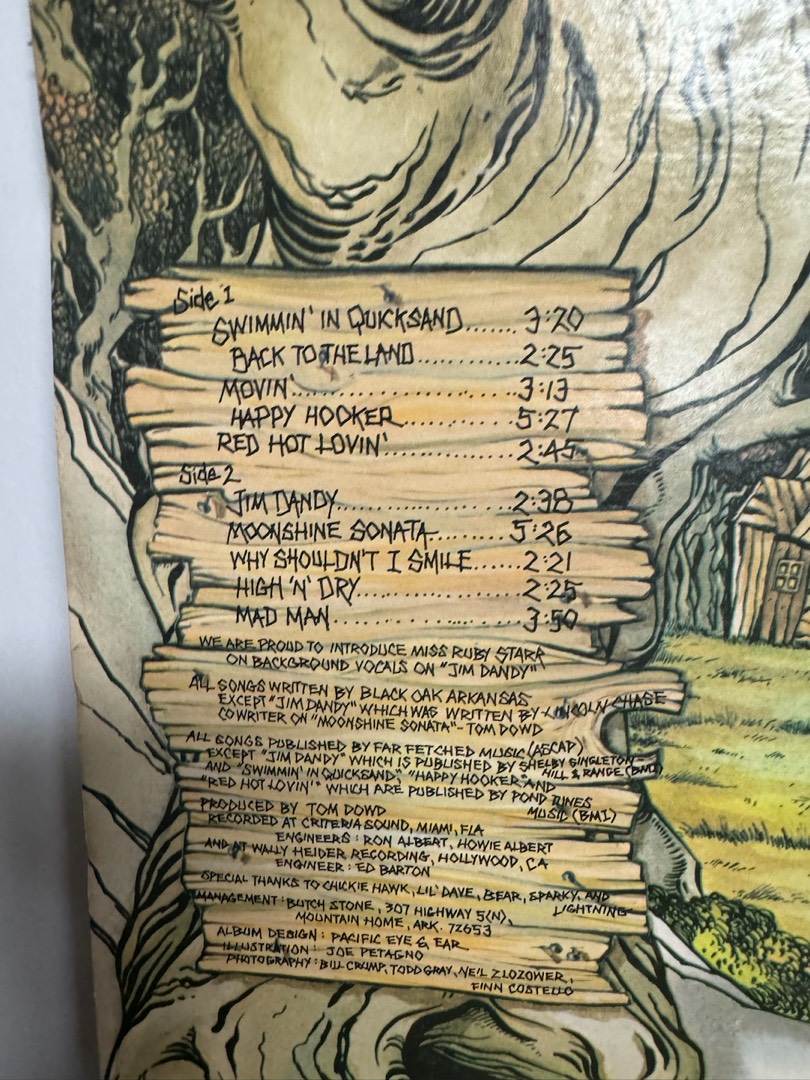 Side 1
SWIMMIN' IN QUICKSAND...... 3:20
BACK TO THE LAND........... 2:25
MOVIN'...................... 3:13
HAPPY HOOKER............. 5:27
RED HOT LOVIN'............... 2:45
Side 2
JIM DANDY.................... 2:38
MOONSHINE SONATA......... 5:26
WHY SHOULDN'T I SMILE...... 2:21
HIGH 'N' DRY................. 2:25
MAD MAN.................... 3:50
WE ARE PROUD TO INTRODUCE MISS RUBY STARR
ON BACKGROUND VOCALS ON "JIM DANDY"
ALL SONGS WRITTEN BY BLACK OAK ARKANSAS
EXCEPT "JIM DANDY" WHICH WAS WRITTEN BY - LINCOLN CHASE
COWRITER ON "MOONSHINE SONATA" - TOM DOWD
ALL SONGS PUBLISHED BY FAR FETCHED MUSIC (ASCAP)
EXCEPT "JIM DANDY" WHICH IS PUBLISHED BY SHELBY SINGLETON -
HILL & RANGE (BMI)
AND "SWIMMIN' IN QUICKSAND," "HAPPY HOOKER" AND
"RED HOT LOVIN'" WHICH ARE PUBLISHED BY POND TUNES
MUSIC (BMI)
PRODUCED BY TOM DOWD
RECORDED AT CRITERIA SOUND, MIAMI, FLA
ENGINEERS: RON ALBERT, HOWIE ALBERT
AND AT WALLY HEIDER RECORDING, HOLLYWOOD, CA
ENGINEER: ED BARTON
SPECIAL THANKS TO CHICKIE HAWK, LIL' DAVE, BEAR, SPARKY, AND
LIGHTNING
MANAGEMENT: BUTCH STONE, 307 HIGHWAY 5(N),
MOUNTAIN HOME, ARK. 72653
ALBUM DESIGN: PACIFIC EYE & EAR
ILLUSTRATION: JOE PETAGNO
PHOTOGRAPHY: BILL CRUMP, TODD GRAY, NEIL ZLOZOWER,
FINN COSTELLO